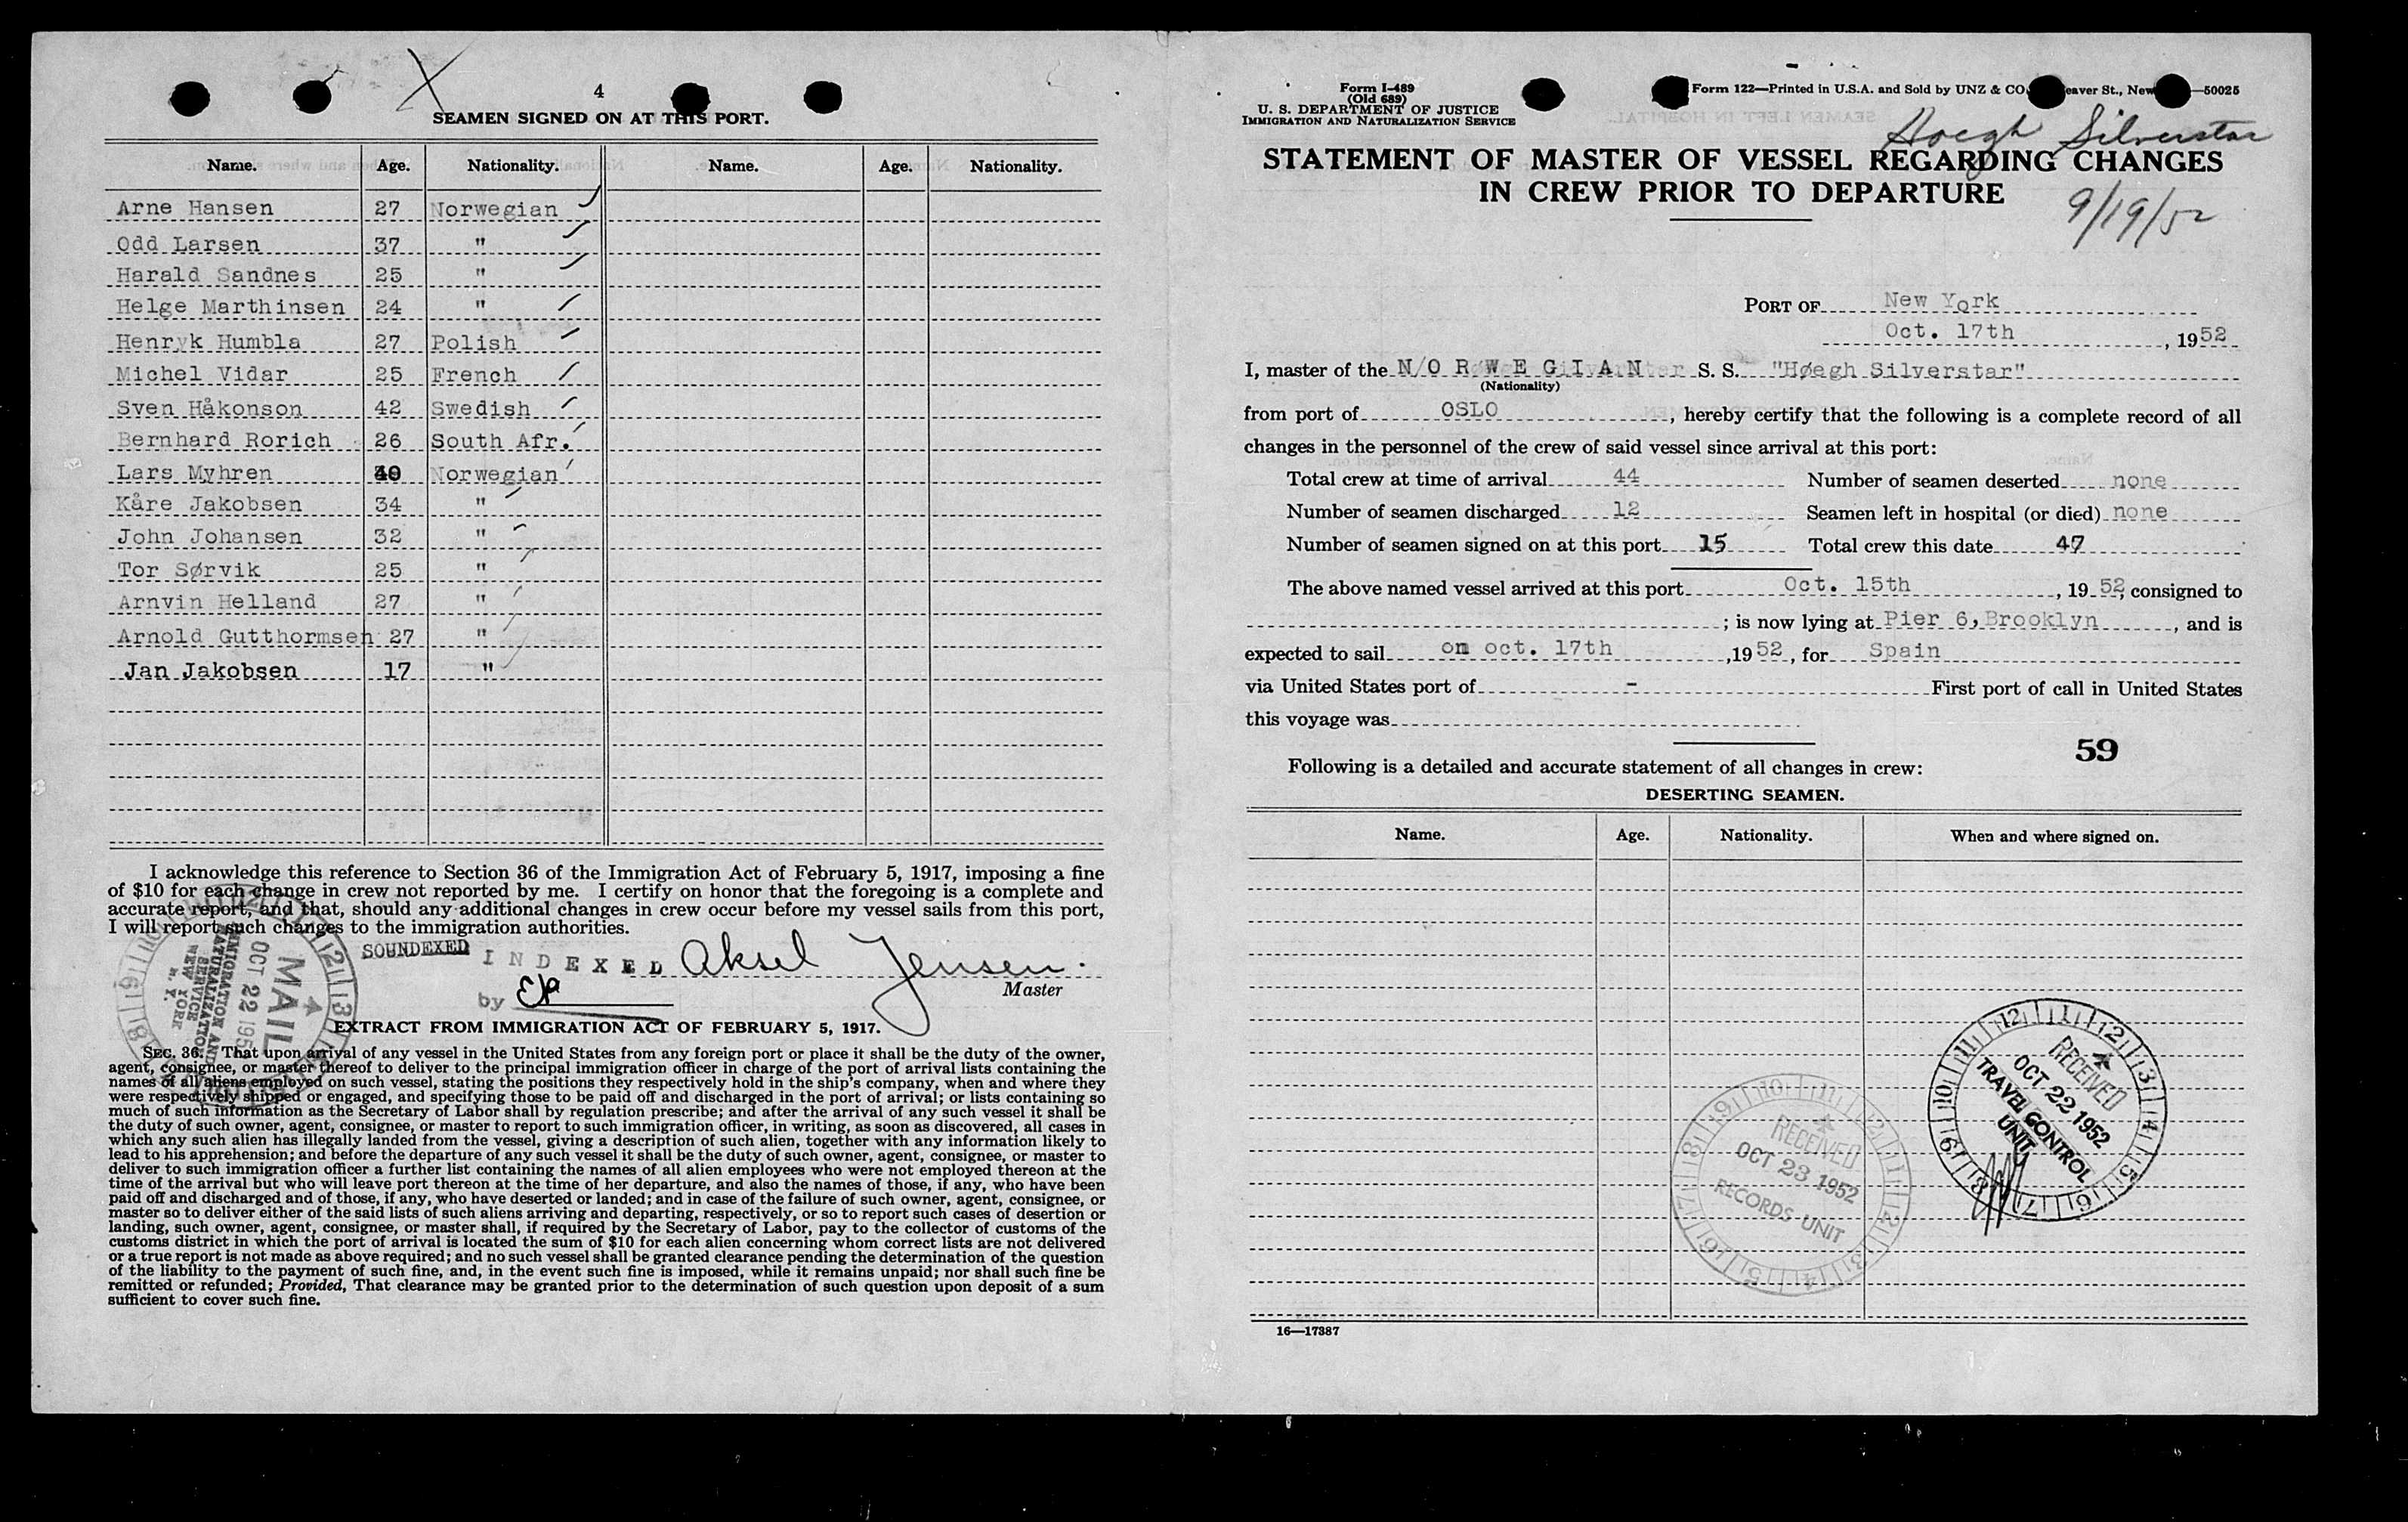 4
SEAMEN SIGNED ON AT THIS PORT.
Name. Age. Nationality. Name. Age. Nationality.
Arne Hansen 27 Norwegian
Odd Larsen 37 "
Harald Sandnes 25 "
Helge Marthinsen 24 "
Henryk Humbla 27 Polish
Michel Vidar 25 French
Sven Håkonson 42 Swedish
Bernhard Rorich 26 South Afr.
Lars Myhren 40 Norwegian
Kåre Jakobsen 34 "
John Johansen 32 "
Tor Sørvik 25 "
Arnvin Helland 27 "
Arnold Gutthormsen 27 "
Jan Jakobsen 17 "
I acknowledge this reference to Section 36 of the Immigration Act of February 5, 1917, imposing a fine
of $10 for each change in crew not reported by me. I certify on honor that the foregoing is a complete and
accurate report, and that, should any additional changes in crew occur before my vessel sails from this port,
I will report such changes to the immigration authorities.
SOUNDEXED
INDEXED
Aksel Jensen.
Master
by
MAIL
OCT 22 195
IMMIGRATION AND
NATURALIZATION
SERVICE
NEW YORK
N. Y.
EXTRACT FROM IMMIGRATION ACT OF FEBRUARY 5, 1917.
SEC. 36. That upon arrival of any vessel in the United States from any foreign port or place it shall be the duty of the owner,
agent, consignee, or master thereof to deliver to the principal immigration officer in charge of the port of arrival lists containing the
names of all aliens employed on such vessel, stating the positions they respectively hold in the ship's company, when and where they
were respectively shipped or engaged, and specifying those to be paid off and discharged in the port of arrival; or lists containing so
much of such information as the Secretary of Labor shall by regulation prescribe; and after the arrival of any such vessel it shall be
the duty of such owner, agent, consignee, or master to report to such immigration officer, in writing, as soon as discovered, all cases in
which any such alien has illegally landed from the vessel, giving a description of such alien, together with any information likely to
lead to his apprehension; and before the departure of any such vessel it shall be the duty of such owner, agent, consignee, or master to
deliver to such immigration officer a further list containing the names of all alien employees who were not employed thereon at the
time of the arrival but who will leave port thereon at the time of her departure, and also the names of those, if any, who have been
paid off and discharged and of those, if any, who have deserted or landed; and in case of the failure of such owner, agent, consignee, or
master so to deliver either of the said lists of such aliens arriving and departing, respectively, or so to report such cases of desertion or
landing, such owner, agent, consignee, or master shall, if required by the Secretary of Labor, pay to the collector of customs of the
customs district in which the port of arrival is located the sum of $10 for each alien concerning whom correct lists are not delivered
or a true report is not made as above required; and no such vessel shall be granted clearance pending the determination of the question
of the liability to the payment of such fine, and, in the event such fine is imposed, while it remains unpaid; nor shall such fine be
remitted or refunded; Provided, That clearance may be granted prior to the determination of such question upon deposit of a sum
sufficient to cover such fine.
Form I-489
(Old 689)
U. S. DEPARTMENT OF JUSTICE
IMMIGRATION AND NATURALIZATION SERVICE
Form 122—Printed in U.S.A. and Sold by UNZ & CO eaver St., New —50025
Hoegh Silverstar
STATEMENT OF MASTER OF VESSEL REGARDING CHANGES
IN CREW PRIOR TO DEPARTURE
9/19/52
PORT OF New York
Oct. 17th, 1952
I, master of the N/O R W E G I A N S. S. "Høegh Silverstar"
(Nationality)
from port of OSLO, hereby certify that the following is a complete record of all
changes in the personnel of the crew of said vessel since arrival at this port:
Total crew at time of arrival 44 Number of seamen deserted none
Number of seamen discharged 12 Seamen left in hospital (or died) none
Number of seamen signed on at this port 15 Total crew this date 47
The above named vessel arrived at this port Oct. 15th, 1952, consigned to
; is now lying at Pier 6, Brooklyn, and is
expected to sail on oct. 17th, 1952, for Spain
via United States port of - First port of call in United States
this voyage was
59
Following is a detailed and accurate statement of all changes in crew:
DESERTING SEAMEN.
Name. Age. Nationality. When and where signed on.
RECEIVED
OCT 22 1952
TRAVEL CONTROL
UNIT
RECEIVED
OCT 23 1952
RECORDS UNIT
16—17387